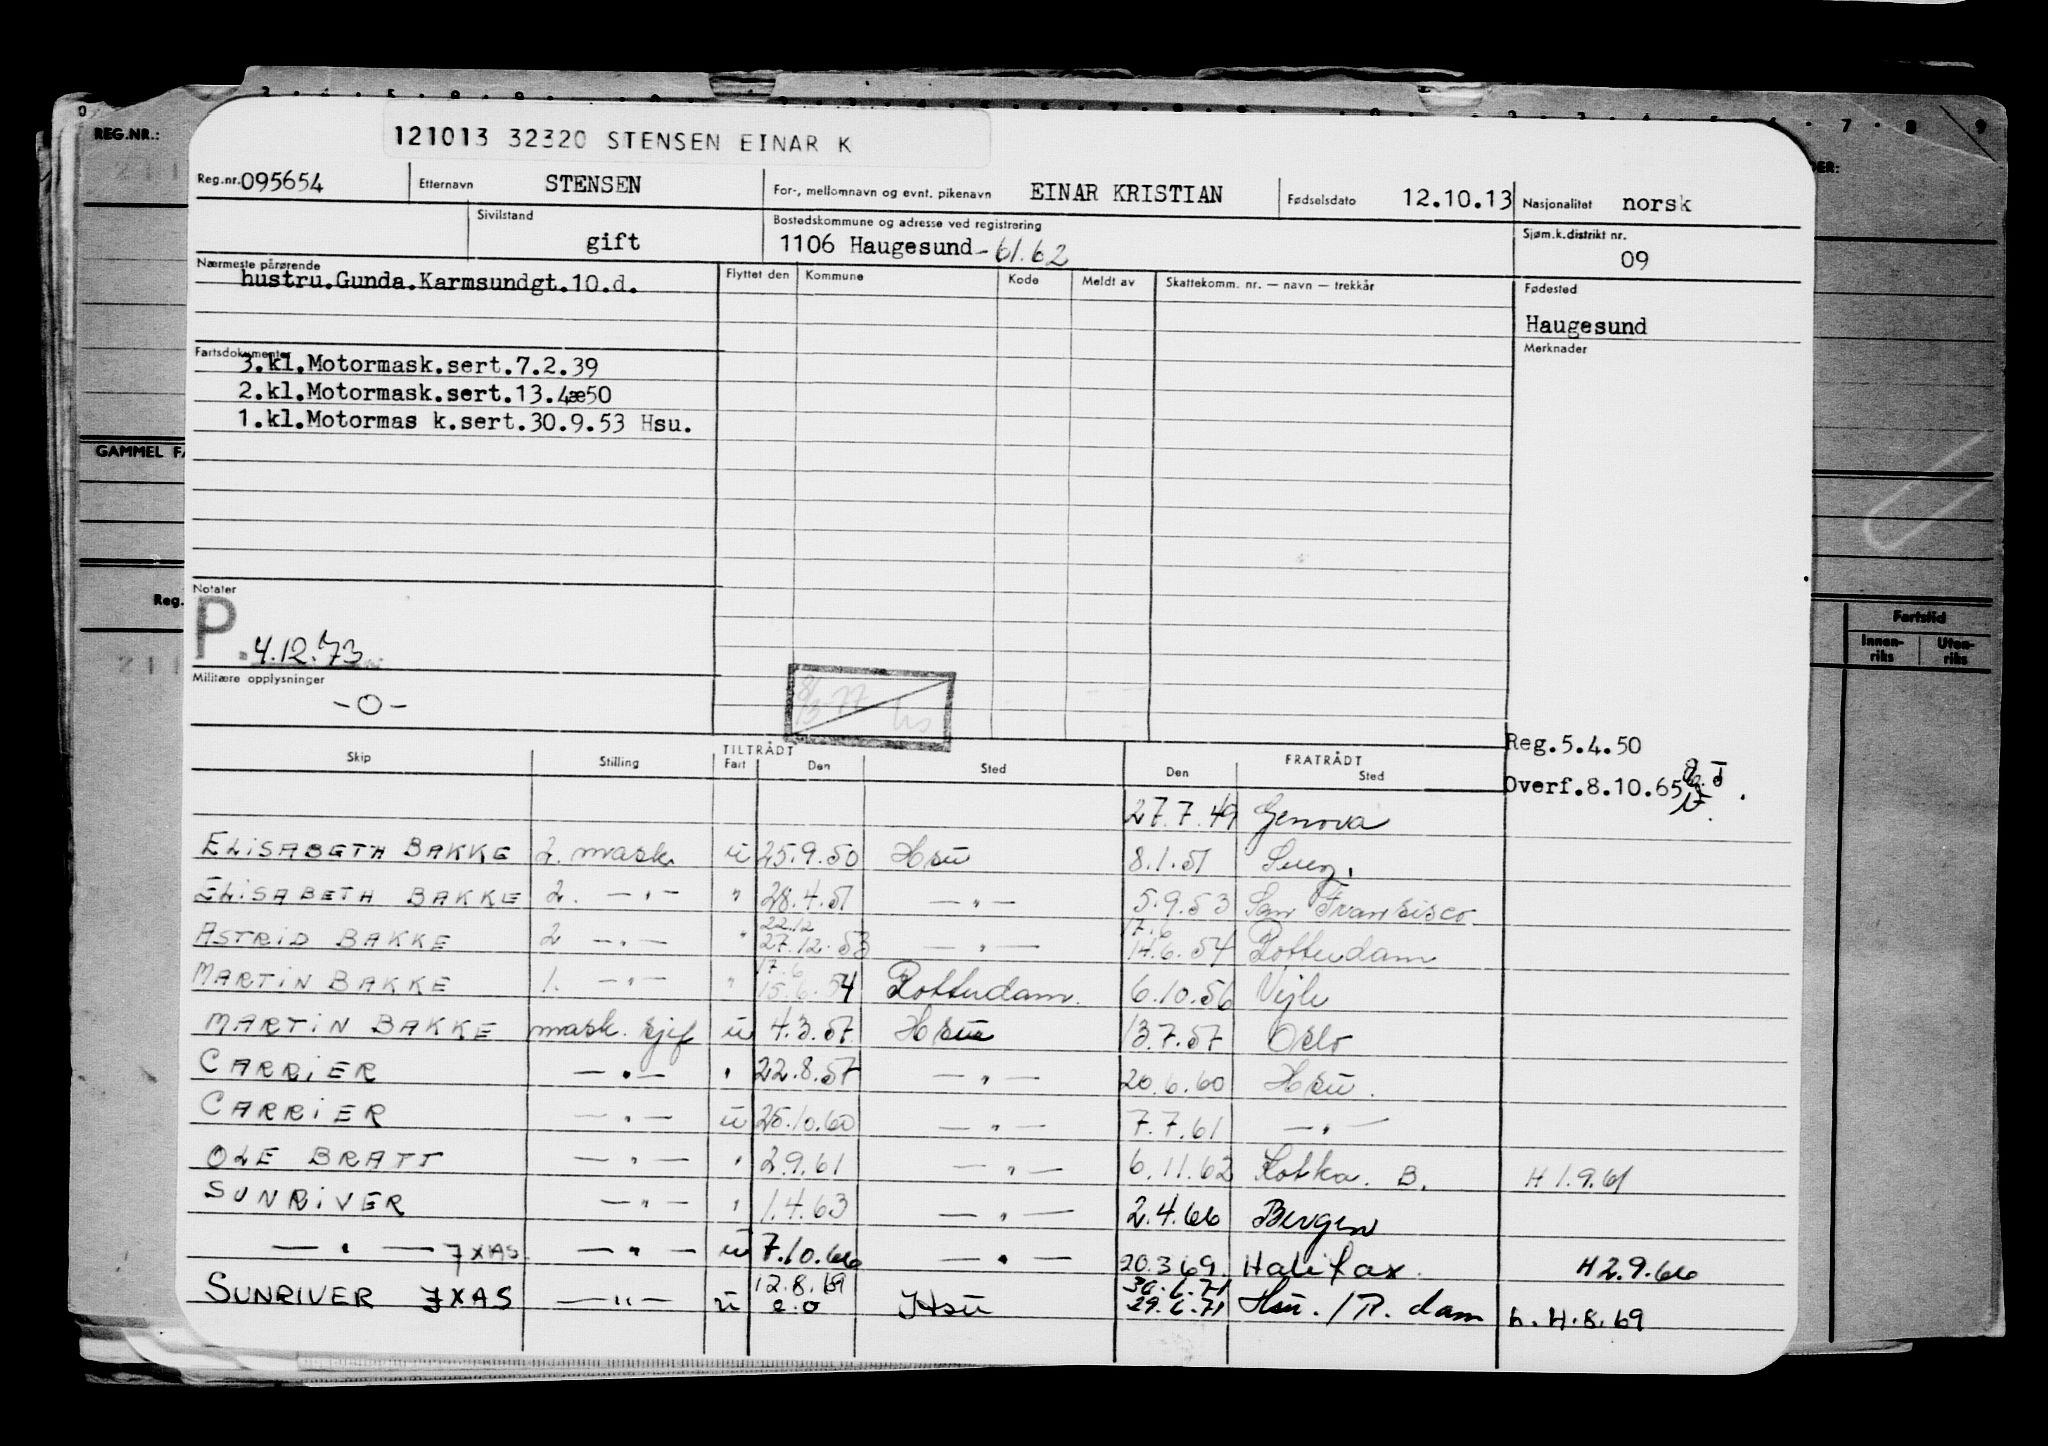 REG.NR.:
121013 32320 STENSEN EINAR K
Reg.nr. 095654 Etternavn STENSEN For-, mellomnavn og evnt. pikenavn EINAR KRISTIAN Fødselsdato 12.10.13 Nasjonalitet norsk
Sivilstand gift Bostedskommune og adresse ved registrering 1106 Haugesund - 61.62 Sjøm.k.distrikt nr. 09
Nærmeste pårørende Flyttet den Kommune Kode Meldt av Skattekomm. nr. — navn — trekkår Fødested
hustru.Gunda.Karmsundgt.10.d.
Haugesund
Fartsdokumenter Merknader
3.kl.Motormask.sert.7.2.39
2.kl.Motormask.sert.13.4æ50
1.kl.Motormas k.sert.30.9.53 Hsu.
GAMMEL FA
Notater
Reg.
P. 4.12.73
Fartstid
Innen-riks Uten-riks
Militære opplysninger
-O-
8/3 77
Reg.5.4.50
Overf.8.10.65
Skip Stilling TILTRÅDT Fart Den Sted FRATRÅDT Den Sted
27.7.49 Genova
ELISABETH BAKKE 2. mask ü 25.9.50 Hsu 8.1.51 Suez.
ELISABETH BAKKE 2. —"— " 28.4.51 —"— 5.9.53 San Fransisco
22.12 17.6
ASTRID BAKKE 2 —"— " 27.12.53 —"— 14.6.54 Rotterdam
17.6
MARTIN BAKKE 1. —"— " 15.6.54 Rotterdam. 6.10.56 Vejle
MARTIN BAKKE mask. sjef ü 4.3.57 Hsu 13.7.57 Oslo
CARRIER —"— " 22.8.57 —"— 20.6.60 Hsu.
CARRIER —"— ü 25.10.60 —"— 7.7.61 —"—
OLE BRATT —"— " 2.9.61 —"— 6.11.62 Kotka. B. H 1.9.61
SUNRIVER —"— " 1.4.63 —"— 2.4.66 Bergen
—"— JXAS. —"— ü 7.10.66 —"— 20.3.69. Halifax. H 2.9.66
12.8.69 30.6.71
SUNRIVER JXAS —"— ü e.o Hsu 29.6.71 Hsu. / R.dam h. H.8.69